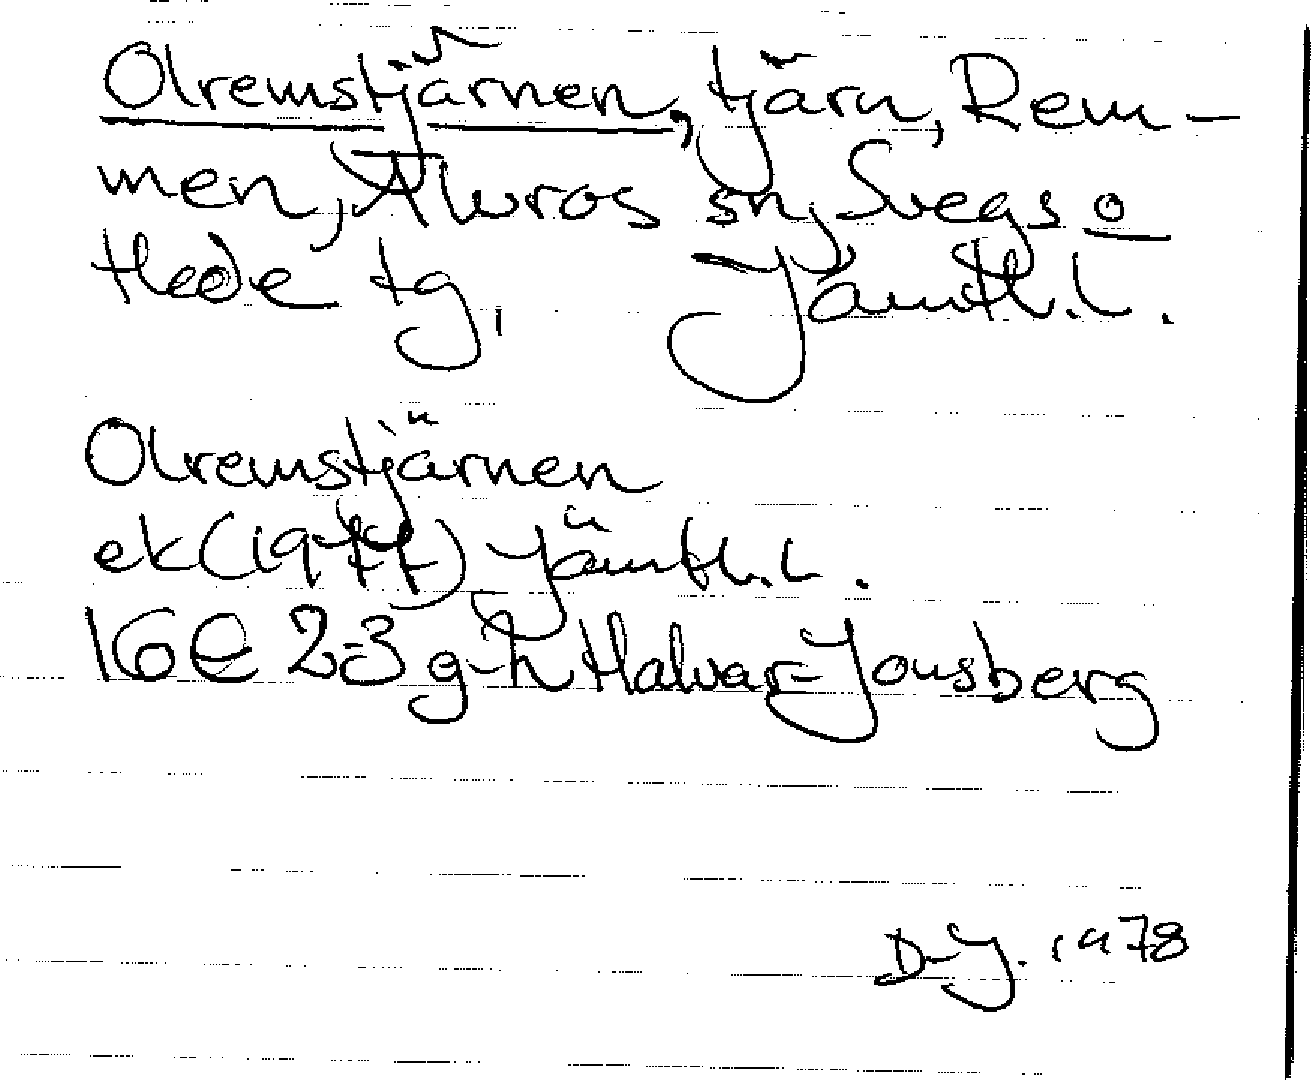 Olremstjärnen, tjärn, Rem-
men, Älvros sn, Svegs o
Hede tg, Jämtl. L.
Olremstjärnen
ek (1977) Jämtl. L.
16e 2-3 g-h Halvar-Jonsberg
D-J. 1978